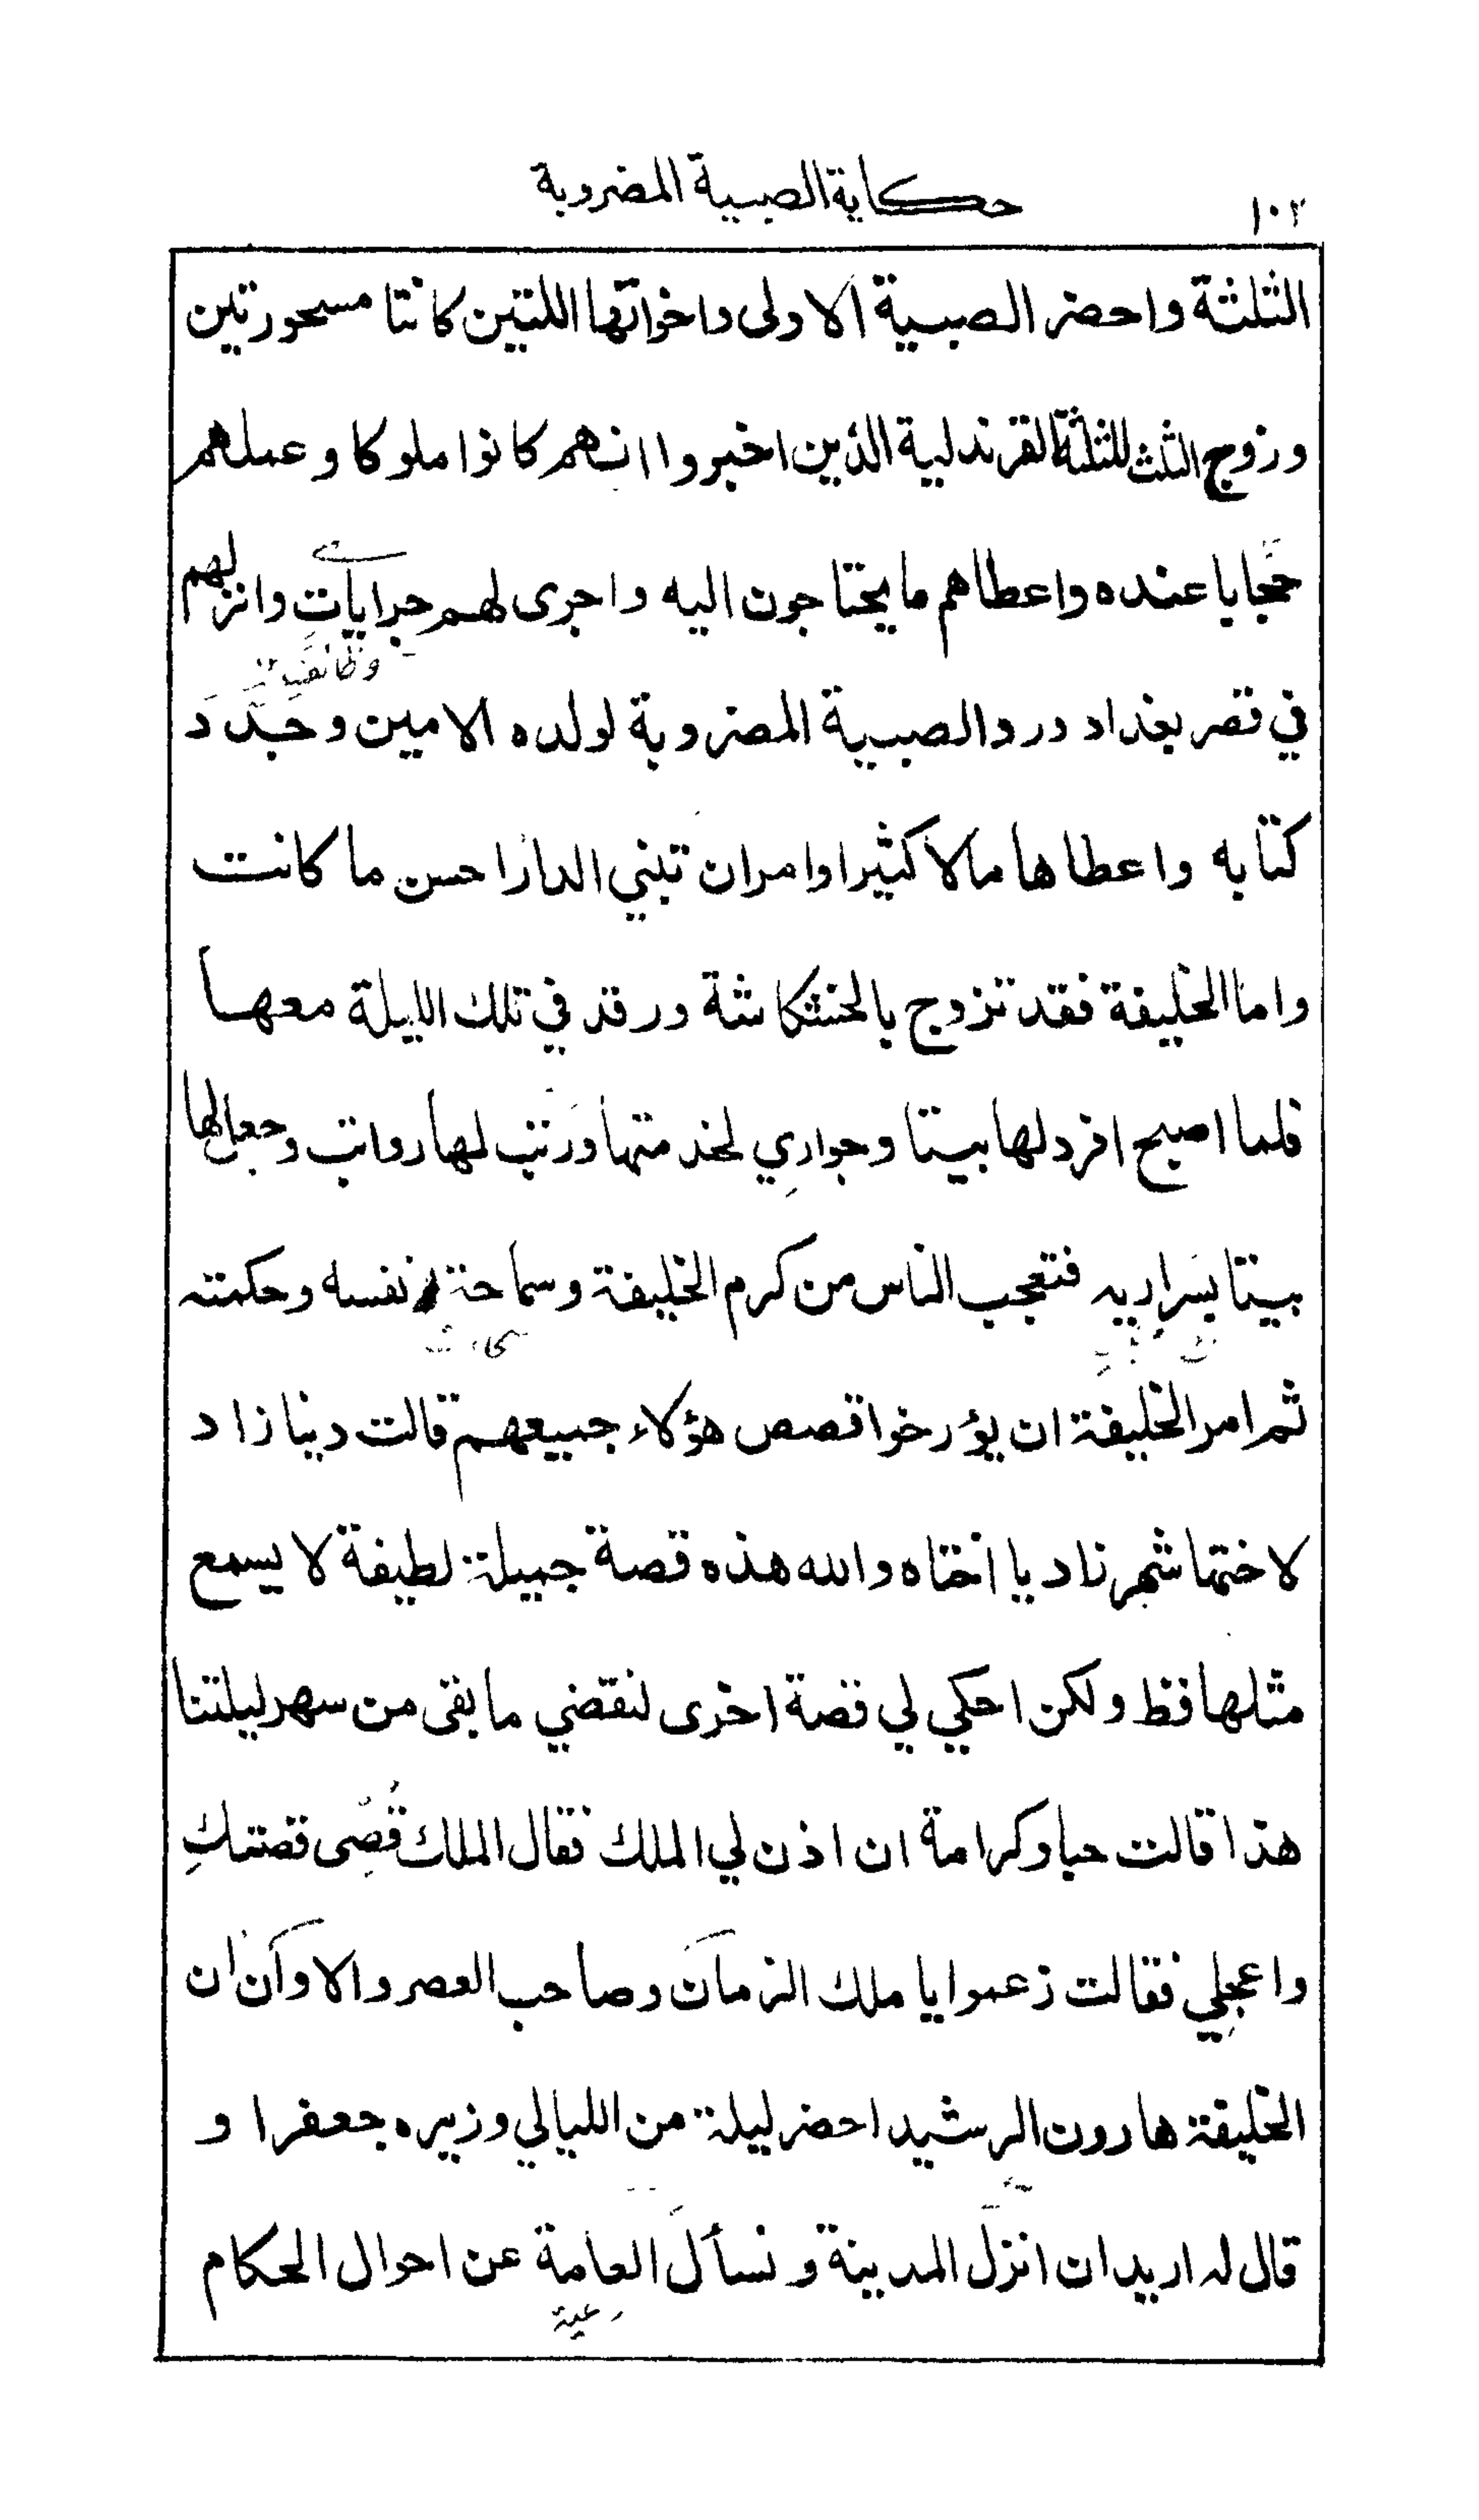 ١٠٢
حكاية الصبية المضروبة
الثلثة واحضر الصبية الاولى واخواتها اللتين كانتا مسحورتين
وزوج الثلث للثلثة القرندلية الذين اخبروا انهم كانوا ملوكا وعملهم
حجابا عنده واعطاهم ما يحتاجون اليه واجرى لهم جرايات وانزلهم
وظائف
في قصر بغداد ورد الصبية المضروبة لولده الامين وجدد
كتابه واعطاها مالا كثيرا وامر ان تبني الدار احسن ما كانت
واما الخليفة فقد تزوج بالخشكاشة ورقد في تلك الليلة معها
فلما اصبح افرد لها بيتا وجواري لخدمتها ورتب لها رواتب وجعل لها
بيتا بسراريه فتعجب الناس من كرم الخليفة وسماحة نفسه وحكمته
ثم امر الخليفة ان يؤرخوا قصص هؤلاء جميعهم قالت دينازاد
لاختها شهرزاد يا اختاه والله هذه قصة جميلة لطيفة لا يسمع
مثلها قط ولكن احكي لي قصة اخرى لنقضي ما بقى من سهر ليلتنا
هذا قالت حبا وكرامة ان اذن لي الملك فقال الملك قُصِّى قصتكِ
واعجلِي فقالت زعموا يا ملك الزمان وصاحب العصر والاوان ان
الخليفة هارون الرشيد احضر ليلة من الليالي وزيره جعفرا و
قال له اريد ان انزل المدينة ونسأل العامة عن احوال الحكام